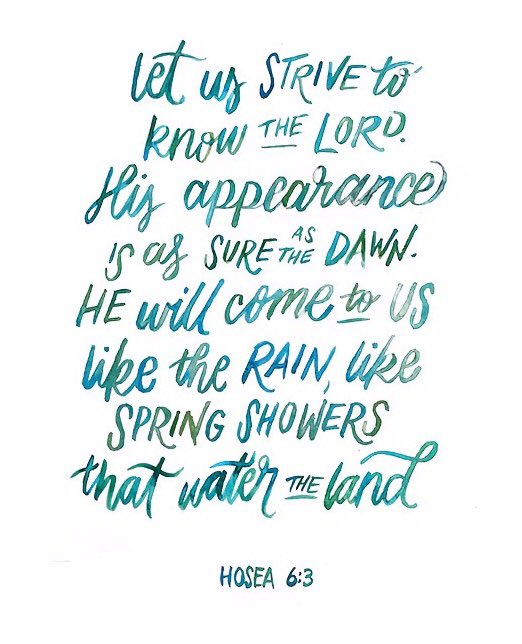 let us STRIVE to
know THE LORD.
His appearance
IS as SURE AS THE DAWN.
HE will come to US
like the RAIN, like
SPRING SHOWERS
that water THE land
HOSEA 6:3